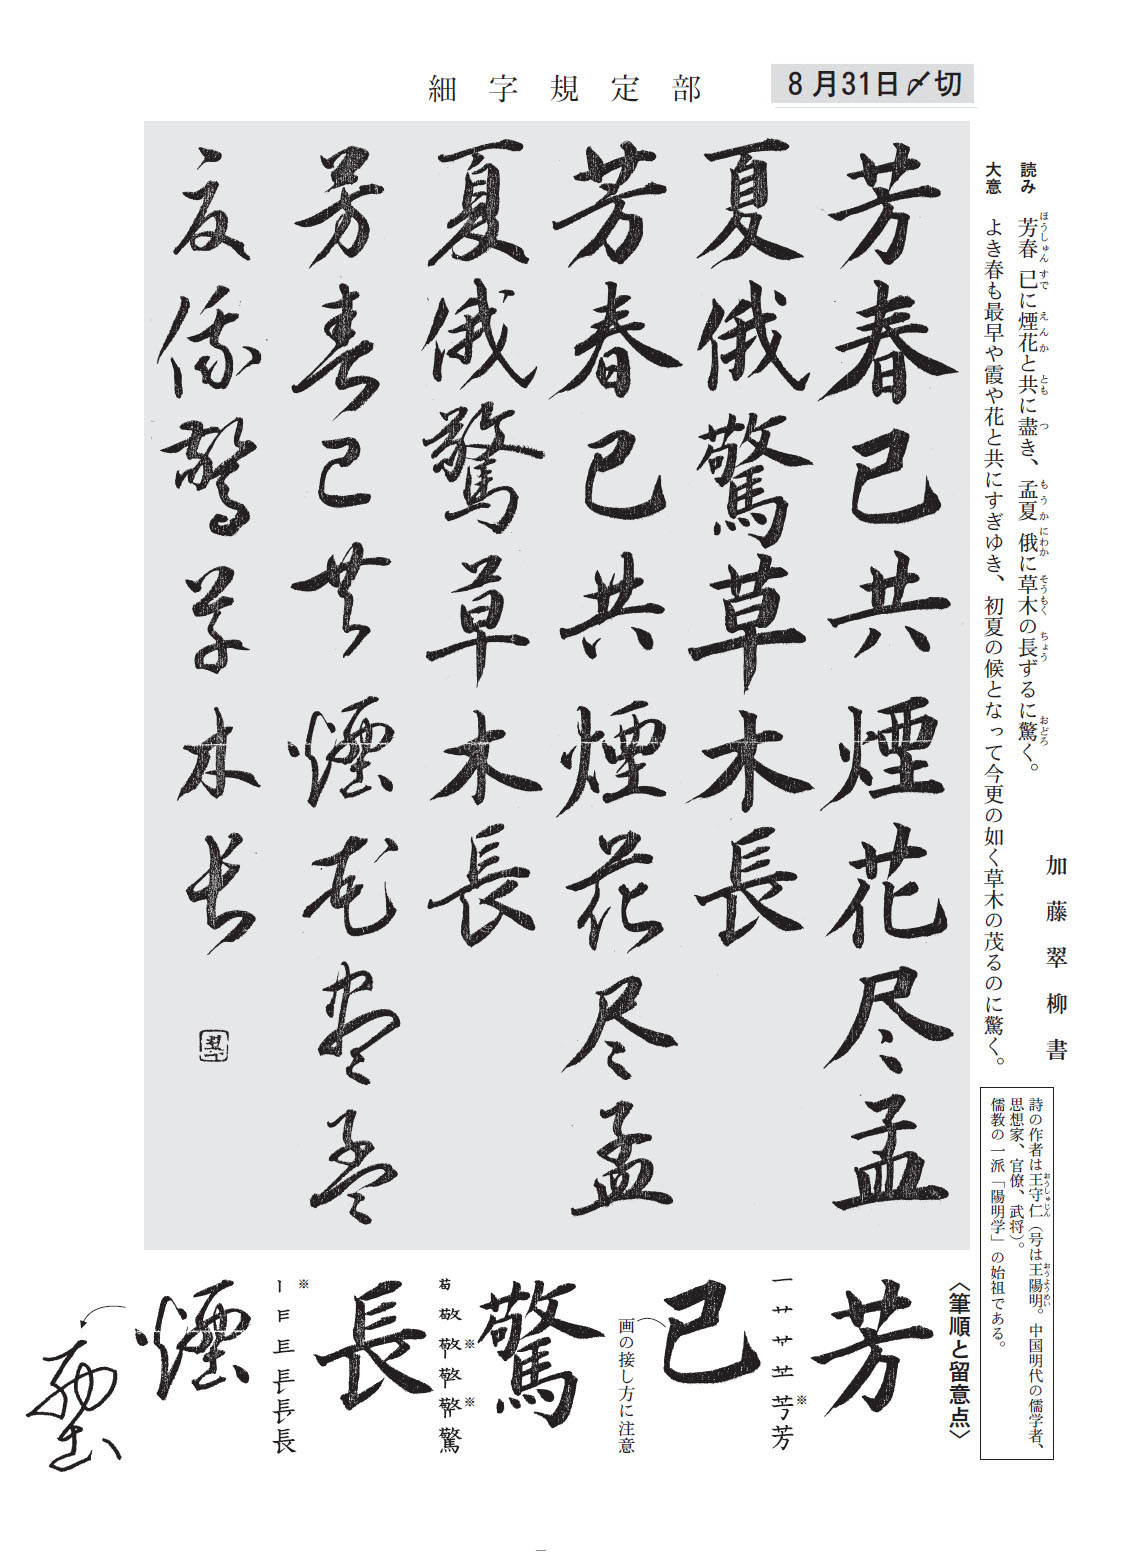 細字規定部
8月31日〆切
読み 芳春 已に煙花と共に盡き、孟夏 俄に草木の長ずるに驚く。
ほうしゅん すで えんか とも つ もうか にわか そうもく ちょう おどろ
大意 よき春も最早や霞や花と共にすぎゆき、初夏の候となって今更の如く草木の茂るのに驚く。
加藤翠柳書
芳春已共煙花尽孟
夏俄驚草木長
芳春已共煙花尽孟
夏俄驚草木長
芳春已共煙花尽孟
夏俄驚草木長
詩の作者は王守仁（号は王陽明。中国明代の儒学者、
おうしゅじん おうようめい
思想家、官僚、武将）。
儒教の一派「陽明学」の始祖である。
〈筆順と留意点〉
芳
※
芳
已
画の接し方に注意
驚
※
※
驚
長
※
長
煙